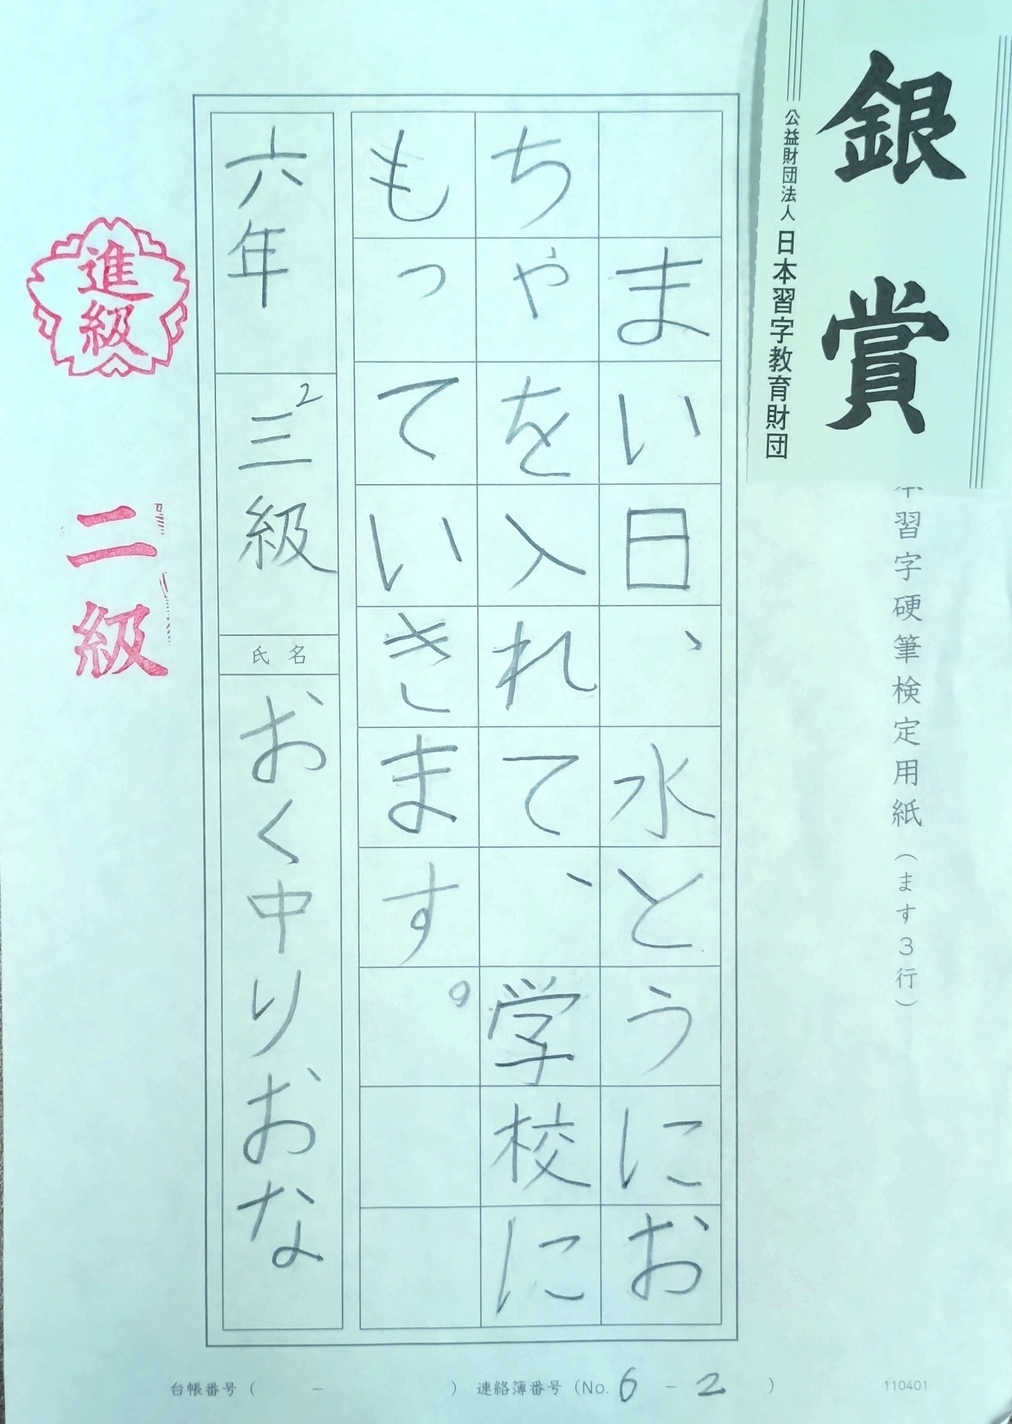 銀賞
公益財団法人 日本習字教育財団
習字硬筆検定用紙(ます3行)
まい日、水とうにお
ちゃを入れて、学校に
もっていきます。
六年
2
三級
氏名
おく中りおな
進級
二級
台帳番号( - ) 連絡簿番号(No. 6 - 2 )
110401